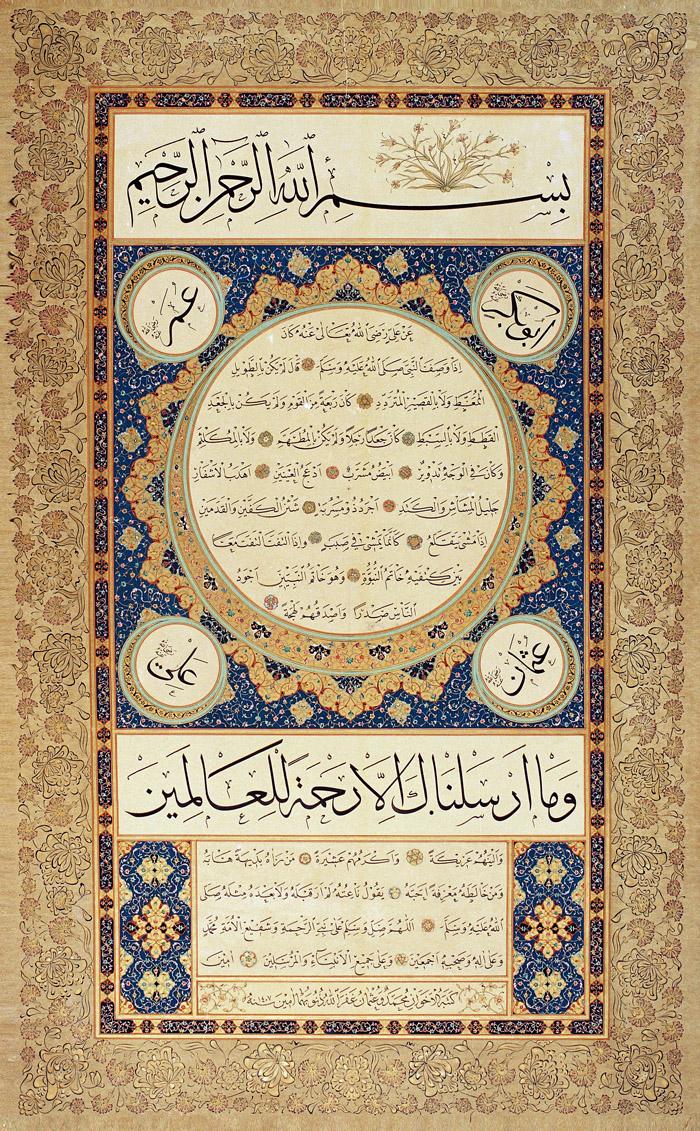 بِسْمِ ٱللّٰهِ ٱلرَّحْمٰنِ ٱلرَّحِيمِ
ابوبكر
عمر
عن علي رضي الله تعالى عنه كان
اذا وصف النبي صلى الله عليه وسلم قال لم يكن بالطويل
الممغط ولا بالقصير المتردد كان ربعة من القوم ولم يكن بالجعد
القطط ولا بالسبط كان جعدا رجلا ولم يكن بالمطهم ولا بالمكلثم
وكان في الوجه تدوير ابيض مشرب ادعج العينين اهدب الاشفار
جليل المشاش والكتد اجرد ذو مسربة شثن الكفين والقدمين
اذا مشى يتقلع كأنما يمشي في صبب واذا التفت التفت معا
بين كتفيه خاتم النبوة وهو خاتم النبيين اجود
الناس صدرا واصدقهم لهجة
عثمان
علي
وَمَا اَرْسَلْنَاكَ اِلَّا رَحْمَةً لِلْعَالَمِينَ
والينهم عريكة واكرمهم عشيرة من رآه بديهة هابه
ومن خالطه معرفة احبه يقول ناعته لم ار قبله ولا بعده مثله صلى
الله عليه وسلم اللهم صل وسلم على نبي الرحمة وشفيع الامة محمد
وعلى آله وصحبه اجمعين وعلى جميع الانبياء والمرسلين آمين
كتبه الاخوان محمد وعثمان غفر الله ذنوبهما آمين